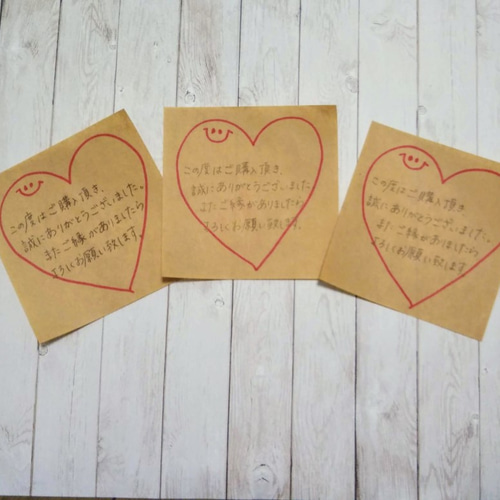 この度はご購入頂き、
誠にありがとうございました。
またご縁がありましたら
よろしくお願い致します。
この度はご購入頂き、
誠にありがとうございました。
またご縁がありましたら
よろしくお願い致します。
この度はご購入頂き
誠にありがとうございました。
またご縁がありましたら
よろしくお願い致します。